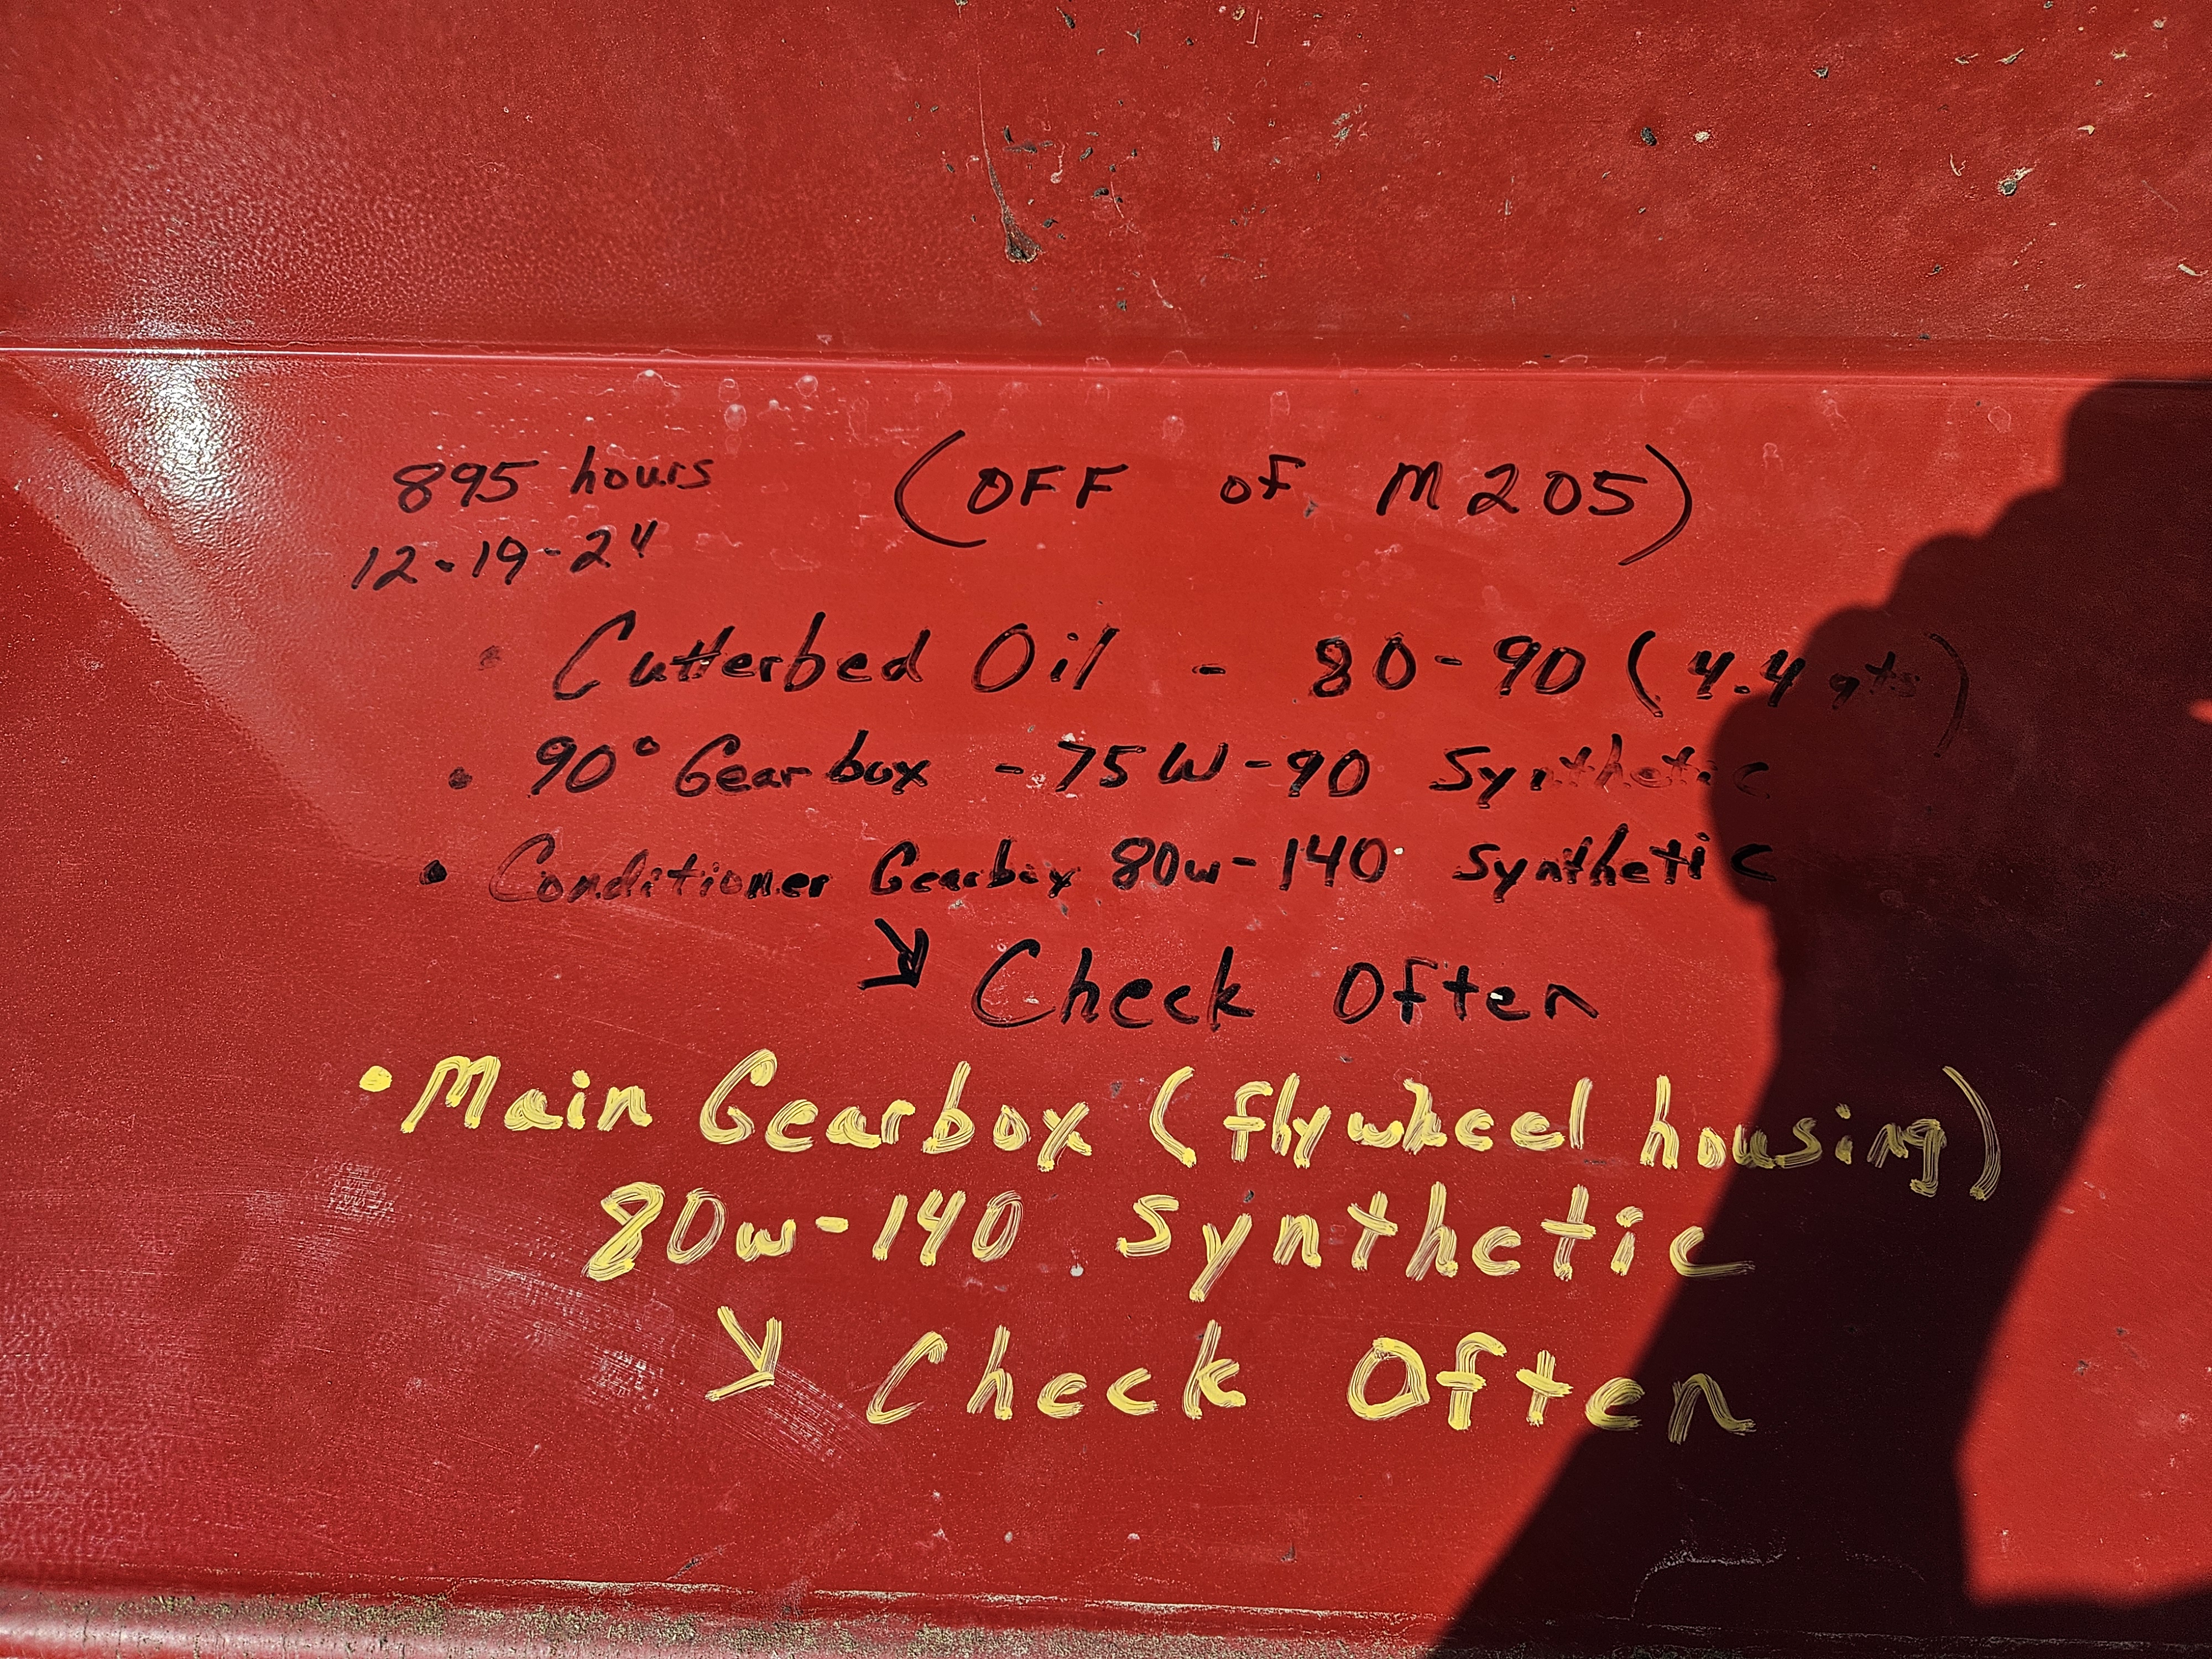 895 hours (OFF of M205)
12-19-24
• Cutterbed Oil - 80-90 (4.4 qts)
• 90° Gearbox - 75W-90 Synthetic
• Conditioner Gearbox 80w-140 Synthetic
↘ Check Often
• Main Gearbox (flywheel housing)
80w-140 Synthetic
↘ Check Often